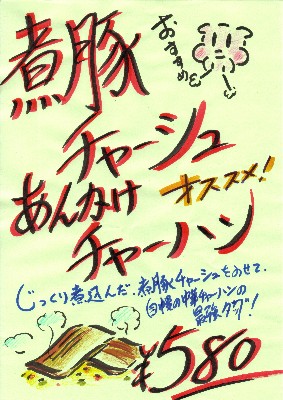 煮豚
おすすめ
チャーシュー
あんかけ
オススメ!
チャーハン
じっくり煮込んだ、煮豚チャーシューをのせて、
自慢の炒チャーハンの
最強タッグ!
¥580